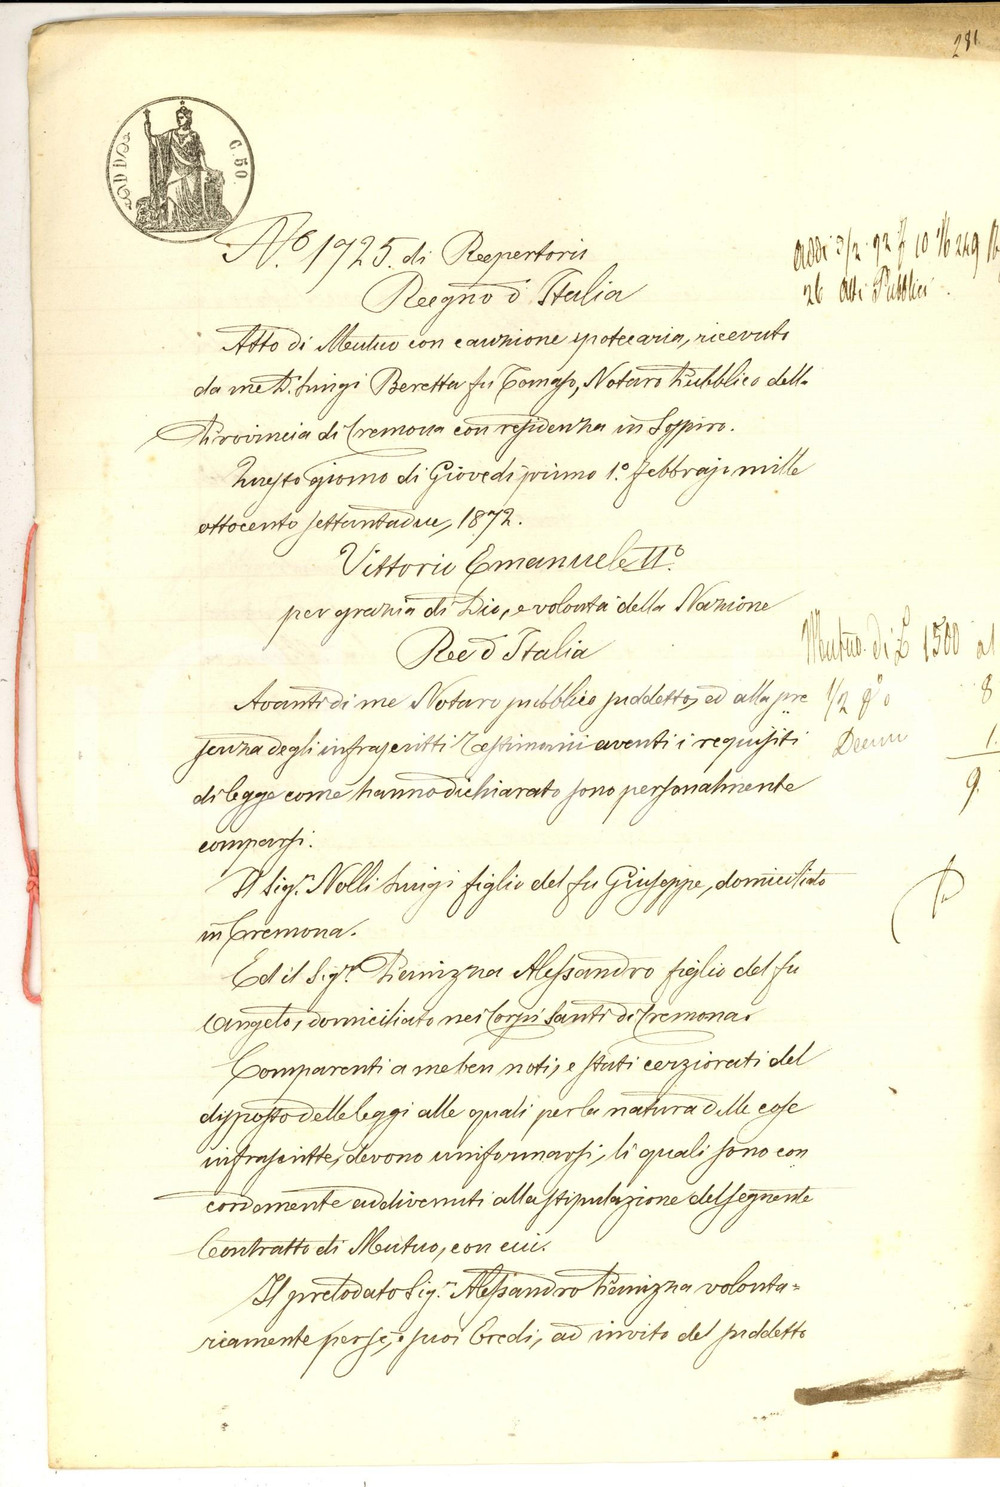 281
C. 50.
N.o 1725. di Repertorio
Regno d'Italia
Atto di Mutuo con cauzione ipotecaria, ricevuto
da me D.r Luigi Beretta fu Tomaso, Notaro Pubblico della
Provincia di Cremona con residenza in Sospiro.
Questo giorno di Giovedì primo 1.o Febbrajo mille
ottocento settantadue, 1872.
Vittorio Emanuele II.o
per grazia di Dio, e volontà della Nazione
Re d'Italia
Avanti di me Notaro pubblico suddetto, ed alla pre
senza degli infrascritti Testimonii aventi i requisiti
di legge come hanno dichiarato sono personalmente
comparsi.
Il Sig.r Nolli Luigi figlio del fu Giuseppe, domiciliato
in Cremona.
Ed il Sig.r Alessandro figlio del fu
Angelo, domiciliato nei Corpi Santi di Cremona.
Comparenti a me ben noti, e stati cerziorati del
disposto delle leggi alle quali per la natura delle cose
infrascritte, devono uniformarsi, li quali sono con
cordemente addivenuti alla stipulazione del seguente
Contratto di Mutuo, con cui.
Il prelodato Sig.r Alessandro volonta=
riamente per se, e suoi Eredi, ad invito del suddetto
Addi 3/2 72 10 249
26 Atti Pubblici
Mutuo di £ 1500 al
1/2 8
1.
9.